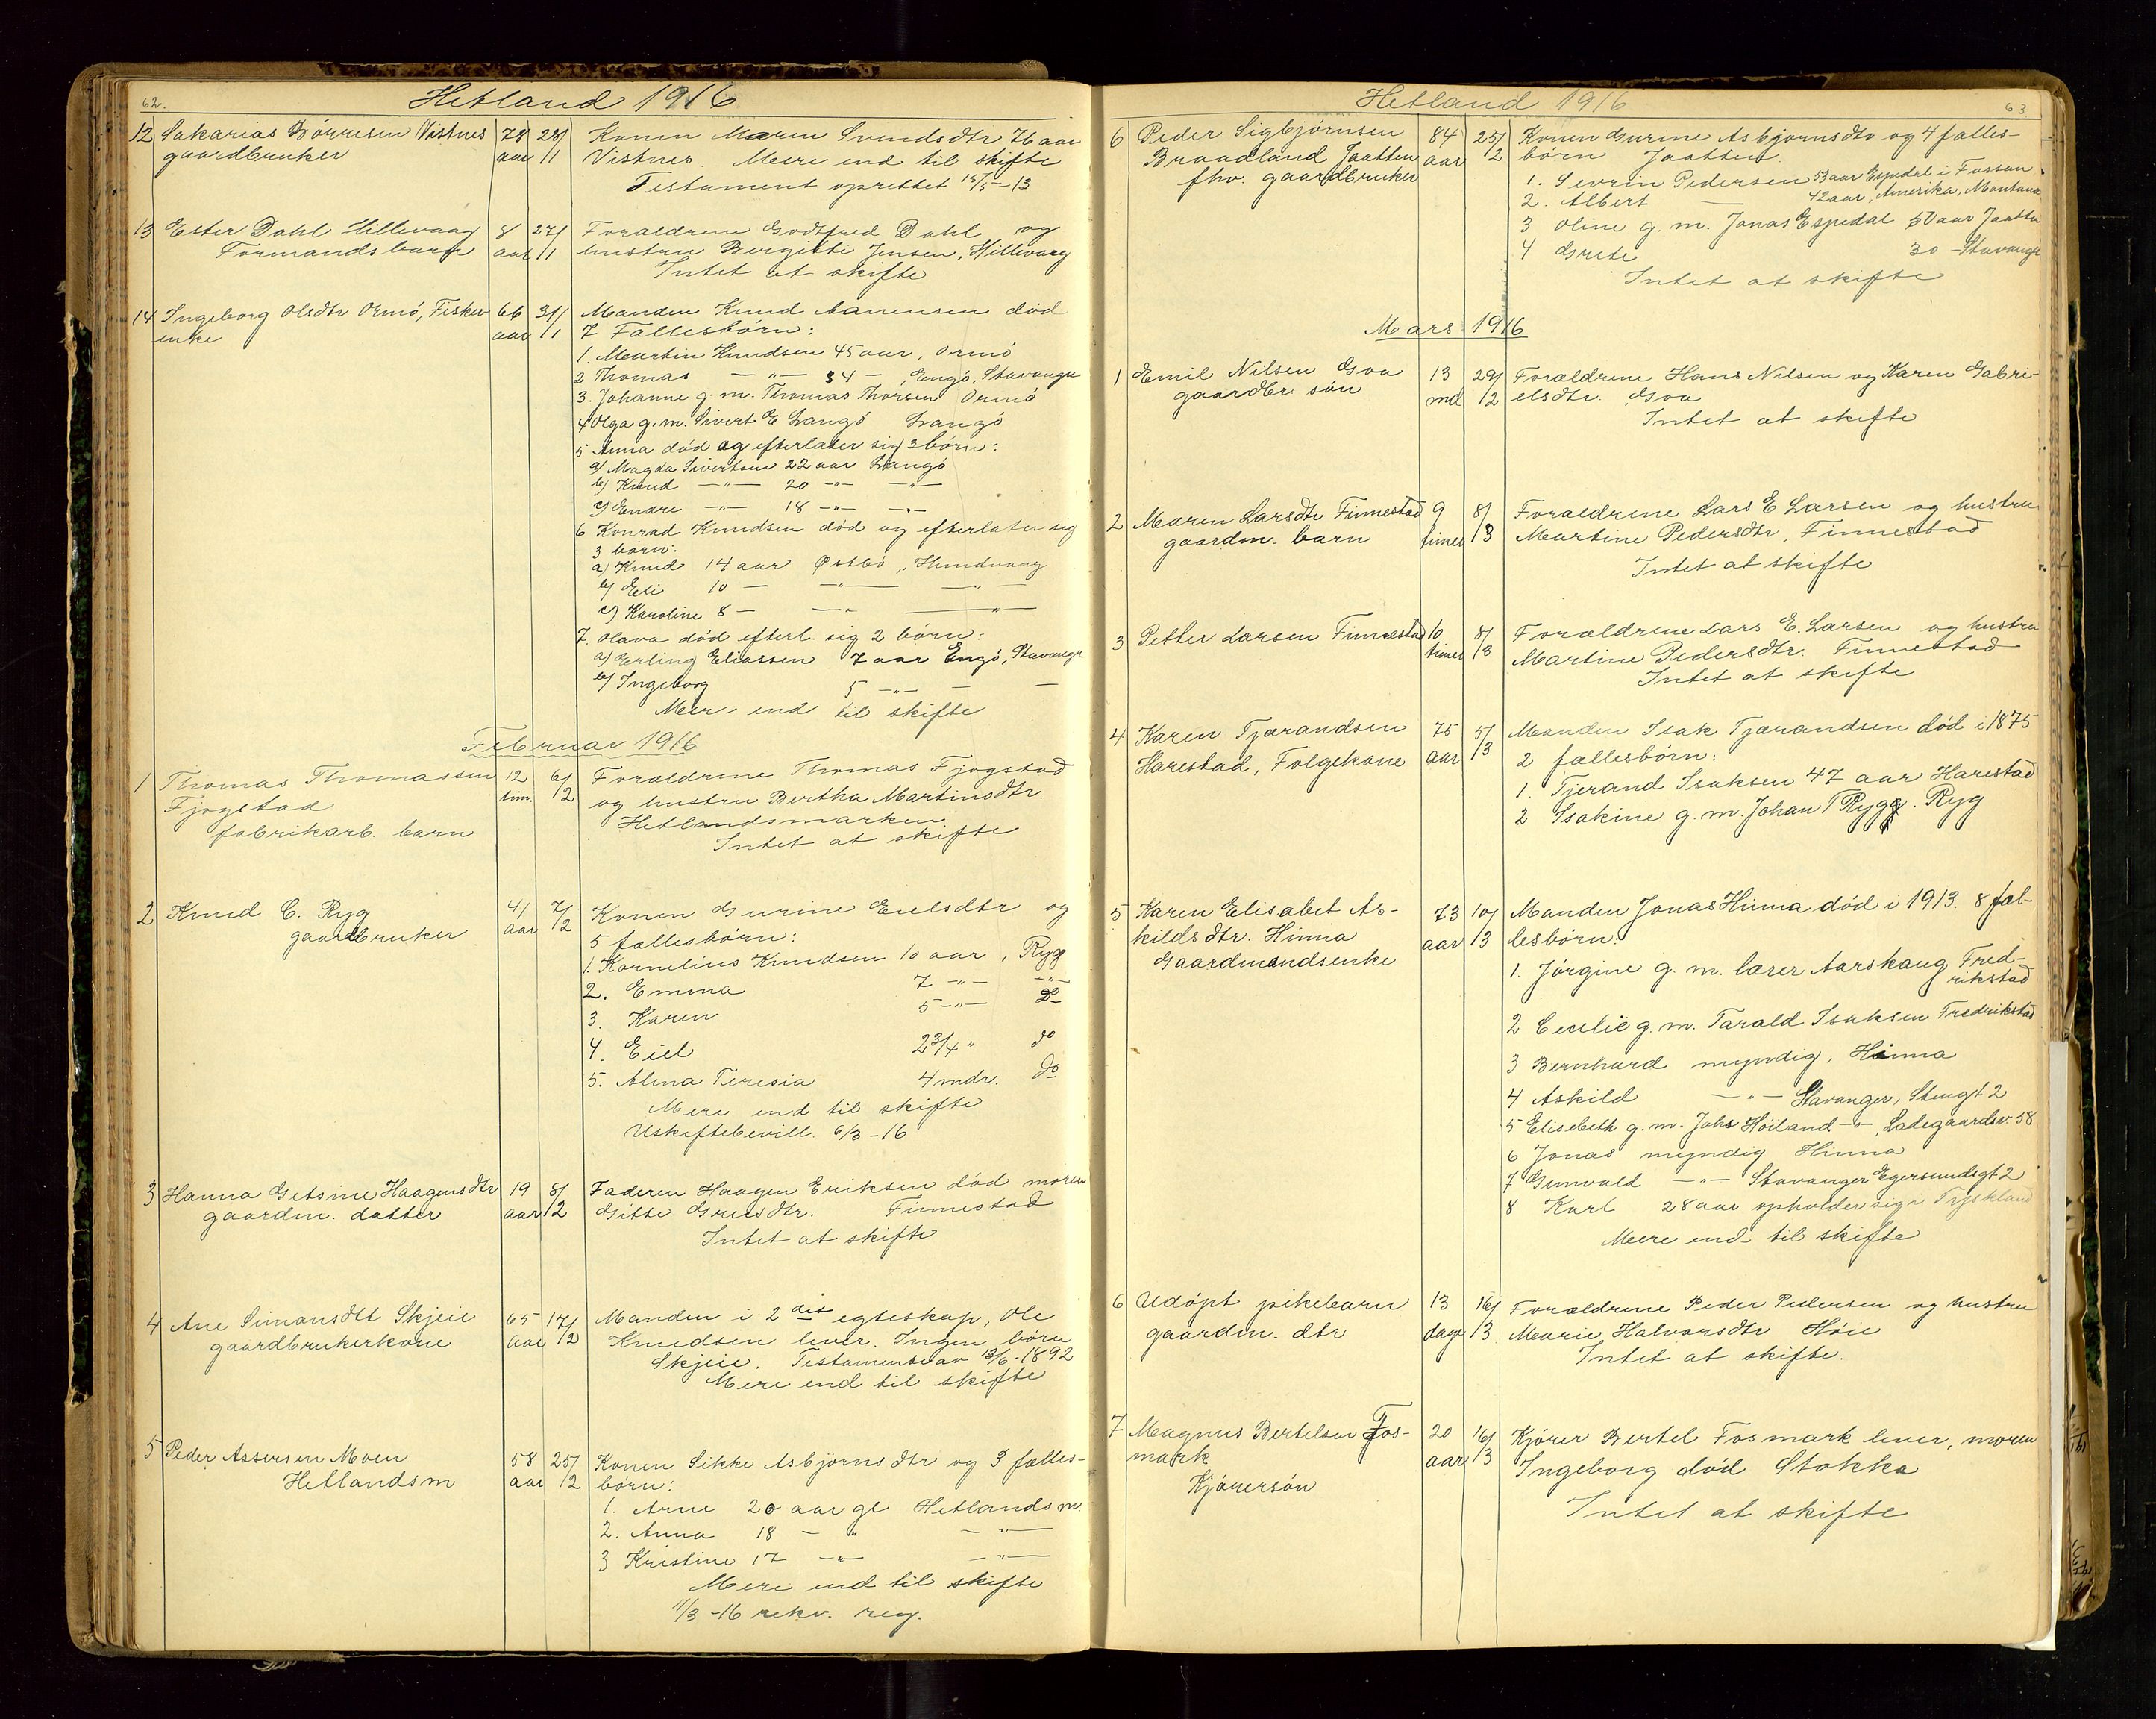 62.
Hetland 1916
12 Sakarias Børresen Vistnes 78 28/ Konen Maren Svendsdtr 76 aar
gaardbruker aar /1 Vistnes. Mere end til skifte
Testament oprettet 15/5-13
13 Ester Dahl Hillevaag 8 27/ Forældrene Godtfred Dahl og
Formandsbarn aar /1 hustru Bergitte Jensen, Hillevaag
Intet at skifte
14 Ingeborg Olsdtr Ormø, Fisker 66 31/ Manden Knud Aanensen død
enke aar /1 7 Fællesbørn:
1. Martin Knudsen 45 aar, Ormø
2 Thomas —"— 34 — , Engø, Stavanger
3. Johanne g. m. Thomas Thorsen Ormø
4 Olga g. m. Sivert E Langø Langø
5 Anna død og efterlater sig 3 børn:
a) Magda Sivertsen 22 aar Langø
b) Knud —"— 20 —"— —"—
c) Endre —"— 18 —"— —"—
6 Konrad Knudsen død og efterlater sig
3 børn:
a) Knud 14 aar Østbø, Hundvaag
b) Eli 10 — —"— —"—
c) Karoline 8 — —"— —"—
7. Olava død efterl. sig 2 børn:
a) Erling Eliassen 7 aar Engø, Stavanger
b) Ingeborg 5 —"— — —
Mere end til skifte
Februar 1916
1 Thomas Thomassen 12 6/ Forældrene Thomas Fjogstad
Fjogstad tim. /2 og hustru Bertha Martinsdtr.
fabrikarb. barn Hetlandsmarken
Intet at skifte
2 Knud C. Ryg 41 7/ Konen Gurine Eielsdtr og
gaardbruker aar /2 5 fællesbørn:
1. Kornelius Knudsen 10 aar, Ryg
2. Emma 7 —"— —"—
3. Karen 5 —"— do
4. Eiel 2 3/4 " do
5. Alma Teresia 4 mdr. do
Mere end til skifte
Uskiftebevill. 6/3-16
3 Hanna Getsine Haagensdtr 19 8/ Faderen Haagen Eriksen død moren
gaardm. datter aar /2 Gitte Greesdtr. Finnestad
Intet at skifte
4 Ane Simonsdtt Skjeie 65 17/ Manden i 2det egteskap, Ole
gaardbrukerkone aar /2 Knudsen lever. Ingen børn
Skjeie. Testament av 13/6-1892
Mere end til skifte
5 Peder Assersen Moen 58 25/ Konen Sikke Asbjørnsdtr og 3 fælles-
Hetlandsm aar /2 børn:
1. Arne 20 aar gl Hetlandsm.
2. Anna 18 — " — —"—
3 Kristine 17 —"— —"—
Mere end til skifte
11/3-16 rekv. reg.
Hetland 1916
63
6 Peder Sigbjørnsen 84 25/ Konen Gurine Asbjørnsdtr og 4 fælles-
Braadland Jaatten aar /2 børn Jaatten.
fhv. gaardbruker 1. Sevrin Pedersen 53 aar Espedal i Fossan
2. Albert — 42 aar, Amerika, Montana
3 Oline g. m. Jonas Espedal 50 aar Jaatten
4 Grete 30 — Stavanger
Intet at skifte
Mars 1916
1 Emil Nilsen Goa 13 29/ Forældrene Hans Nilsen og Karen Gabri-
gaardbr søn md /2 elsdtr. Goa
Intet at skifte
2 Maren Larsdtr Finnestad 9 8/ Forældrene Lars E Larsen og hustru
gaardm. barn timer /3 Martine Pedersdtr, Finnestad
Intet at skifte
3 Petter Larsen Finnestad 10 8/ Forældrene Lars E. Larsen og hustru
timer /3 Martine Pedersdtr. Finnestad
Intet at skifte
4 Karen Tjærandsen 75 5/ Manden Isak Tjærandsen død i 1875
Harestad, Folgekone aar /3 2 fællesbørn:
1. Tjerand Isaksen 47 aar Harestad
2 Isakine g. m. Johan T Ryg. Ryg
5 Karen Elisabet As- 73 10/ Manden Jonas Hinna død i 1913. 8 fæl-
kildsdtr. Hinna aar /3 lesbørn:
Gaardmandsenke 1. Jørgine g. m. lærer Aarskaug Fred-
rikstad
2 Cecilie g. m. Tarald Isaksen Fredrikstad
3 Bernhard myndig, Hinna
4 Askild —"— Stavanger, Stengt 2
5 Elisabeth g. m. Johs Høiland —"—, Ladegaardsv. 58
6 Jonas myndig Hinna
7 Gunvald —"— Stavanger Egersundsgt 2
8 Karl 28 aar opholder sig i Tyskland
Mere end til skifte
6 Udøpt pikebarn 13 16/ Forældrene Peder Pedersen og hustru
gaardm. dtr dage /3 Marie Halvorsdtr Høie
Intet at skifte.
7 Magnus Bertelsen Fos- 20 16/ Kjører Bertel Fosmark lever, moren
mark aar /3 Ingeborg død Stokka
Kjørersøn
Intet at skifte